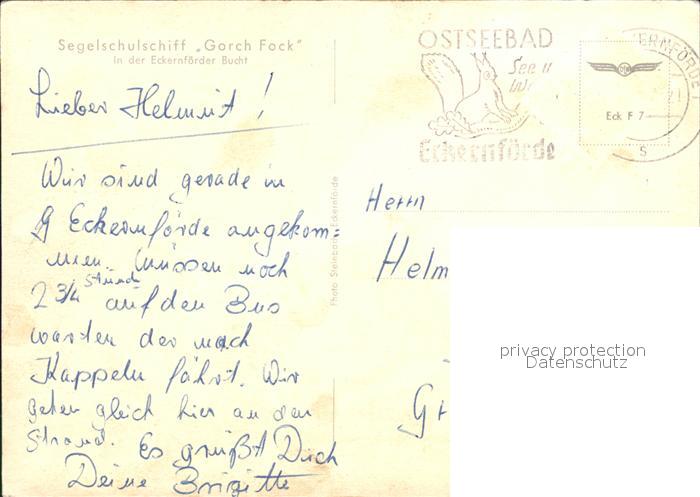 Segelschulschiff „Gorch Fock"
in der Eckernförder Bucht
Lieber Helmut!
Wir sind gerade in
Eckernförde angekom=
men. Müssen noch
2 3/4 Stunde auf den Bus
warten der nach
Kappeln fährt. Wir
gehen gleich hier an den
Strand. Es grüßt Dich
Deine Brigitte
Photo Steinbauer, Eckernförde
OSTSEEBAD
See u
Eckernförde
Eck F 7
s
Herrn
Helm
privacy protection
Datenschutz